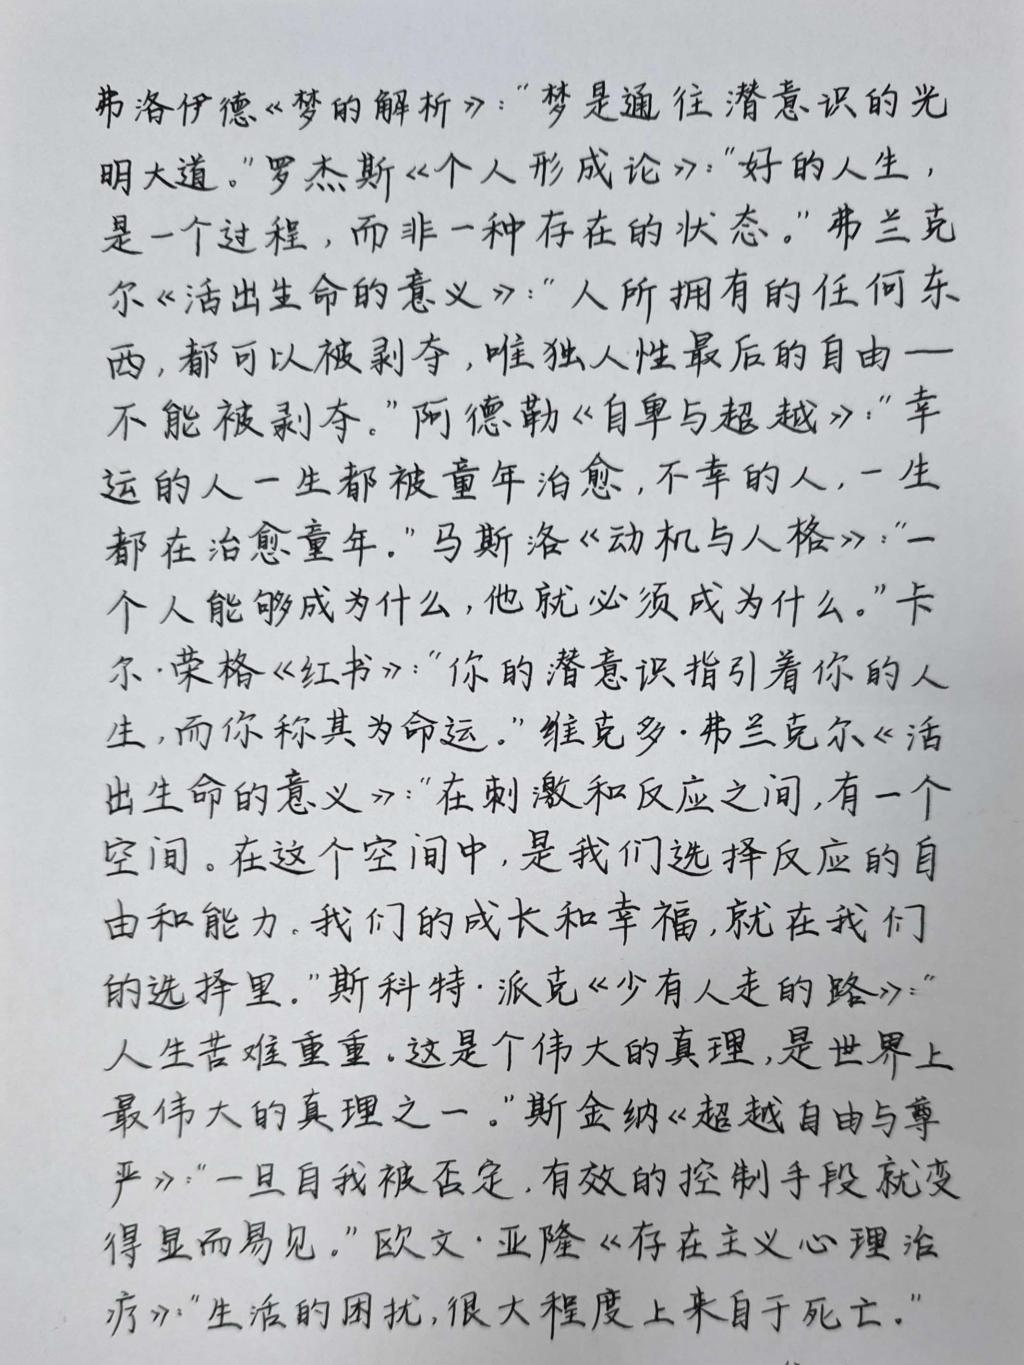 弗洛伊德《梦的解析》:"梦是通往潜意识的光
明大道。"罗杰斯《个人形成论》:"好的人生,
是一个过程,而非一种存在的状态。"弗兰克
尔《活出生命的意义》:"人所拥有的任何东
西,都可以被剥夺,唯独人性最后的自由一
不能被剥夺。"阿德勒《自卑与超越》:"幸
运的人一生都被童年治愈,不幸的人,一生
都在治愈童年。"马斯洛《动机与人格》:"一
个人能够成为什么,他就必须成为什么。"卡
尔·荣格《红书》:"你的潜意识指引着你的人
生,而你称其为命运。"维克多·弗兰克尔《活
出生命的意义》:"在刺激和反应之间,有一个
空间。在这个空间中,是我们选择反应的自
由和能力。我们的成长和幸福,就在我们
的选择里。"斯科特·派克《少有人走的路》:"
人生苦难重重。这是个伟大的真理,是世界上
最伟大的真理之一。"斯金纳《超越自由与尊
严》:"一旦自我被否定,有效的控制手段就变
得显而易见。"欧文·亚隆《存在主义心理治
疗》:"生活的困扰,很大程度上来自于死亡."